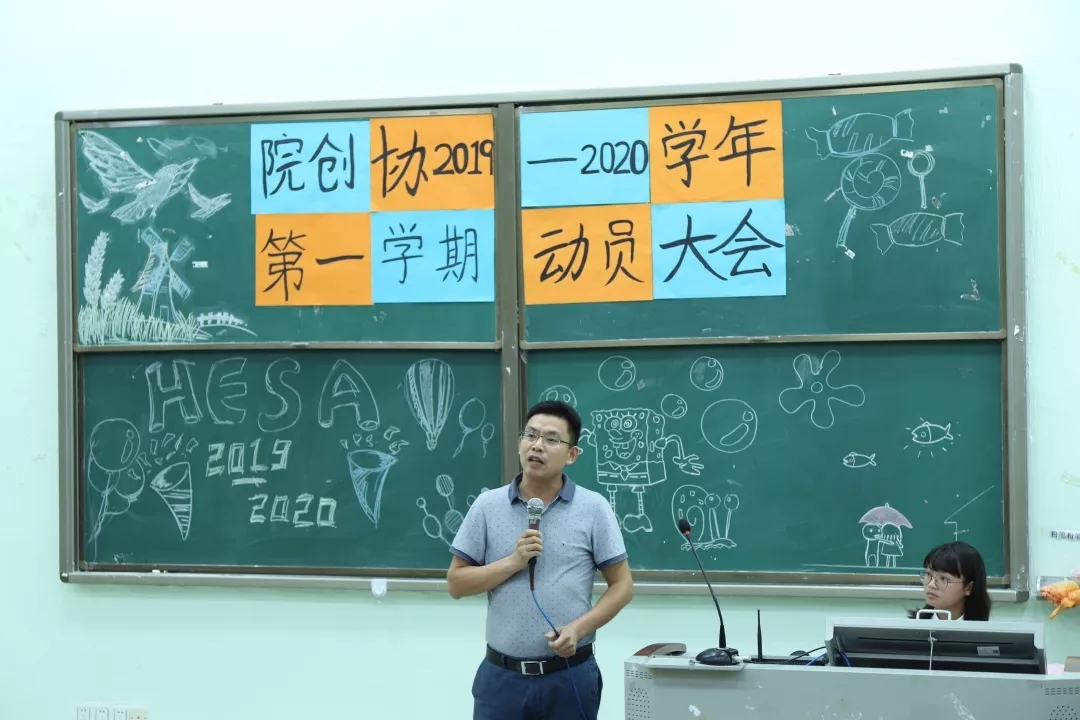 院创协2019—2020学年
第一学期动员大会
HESA
2019
2020